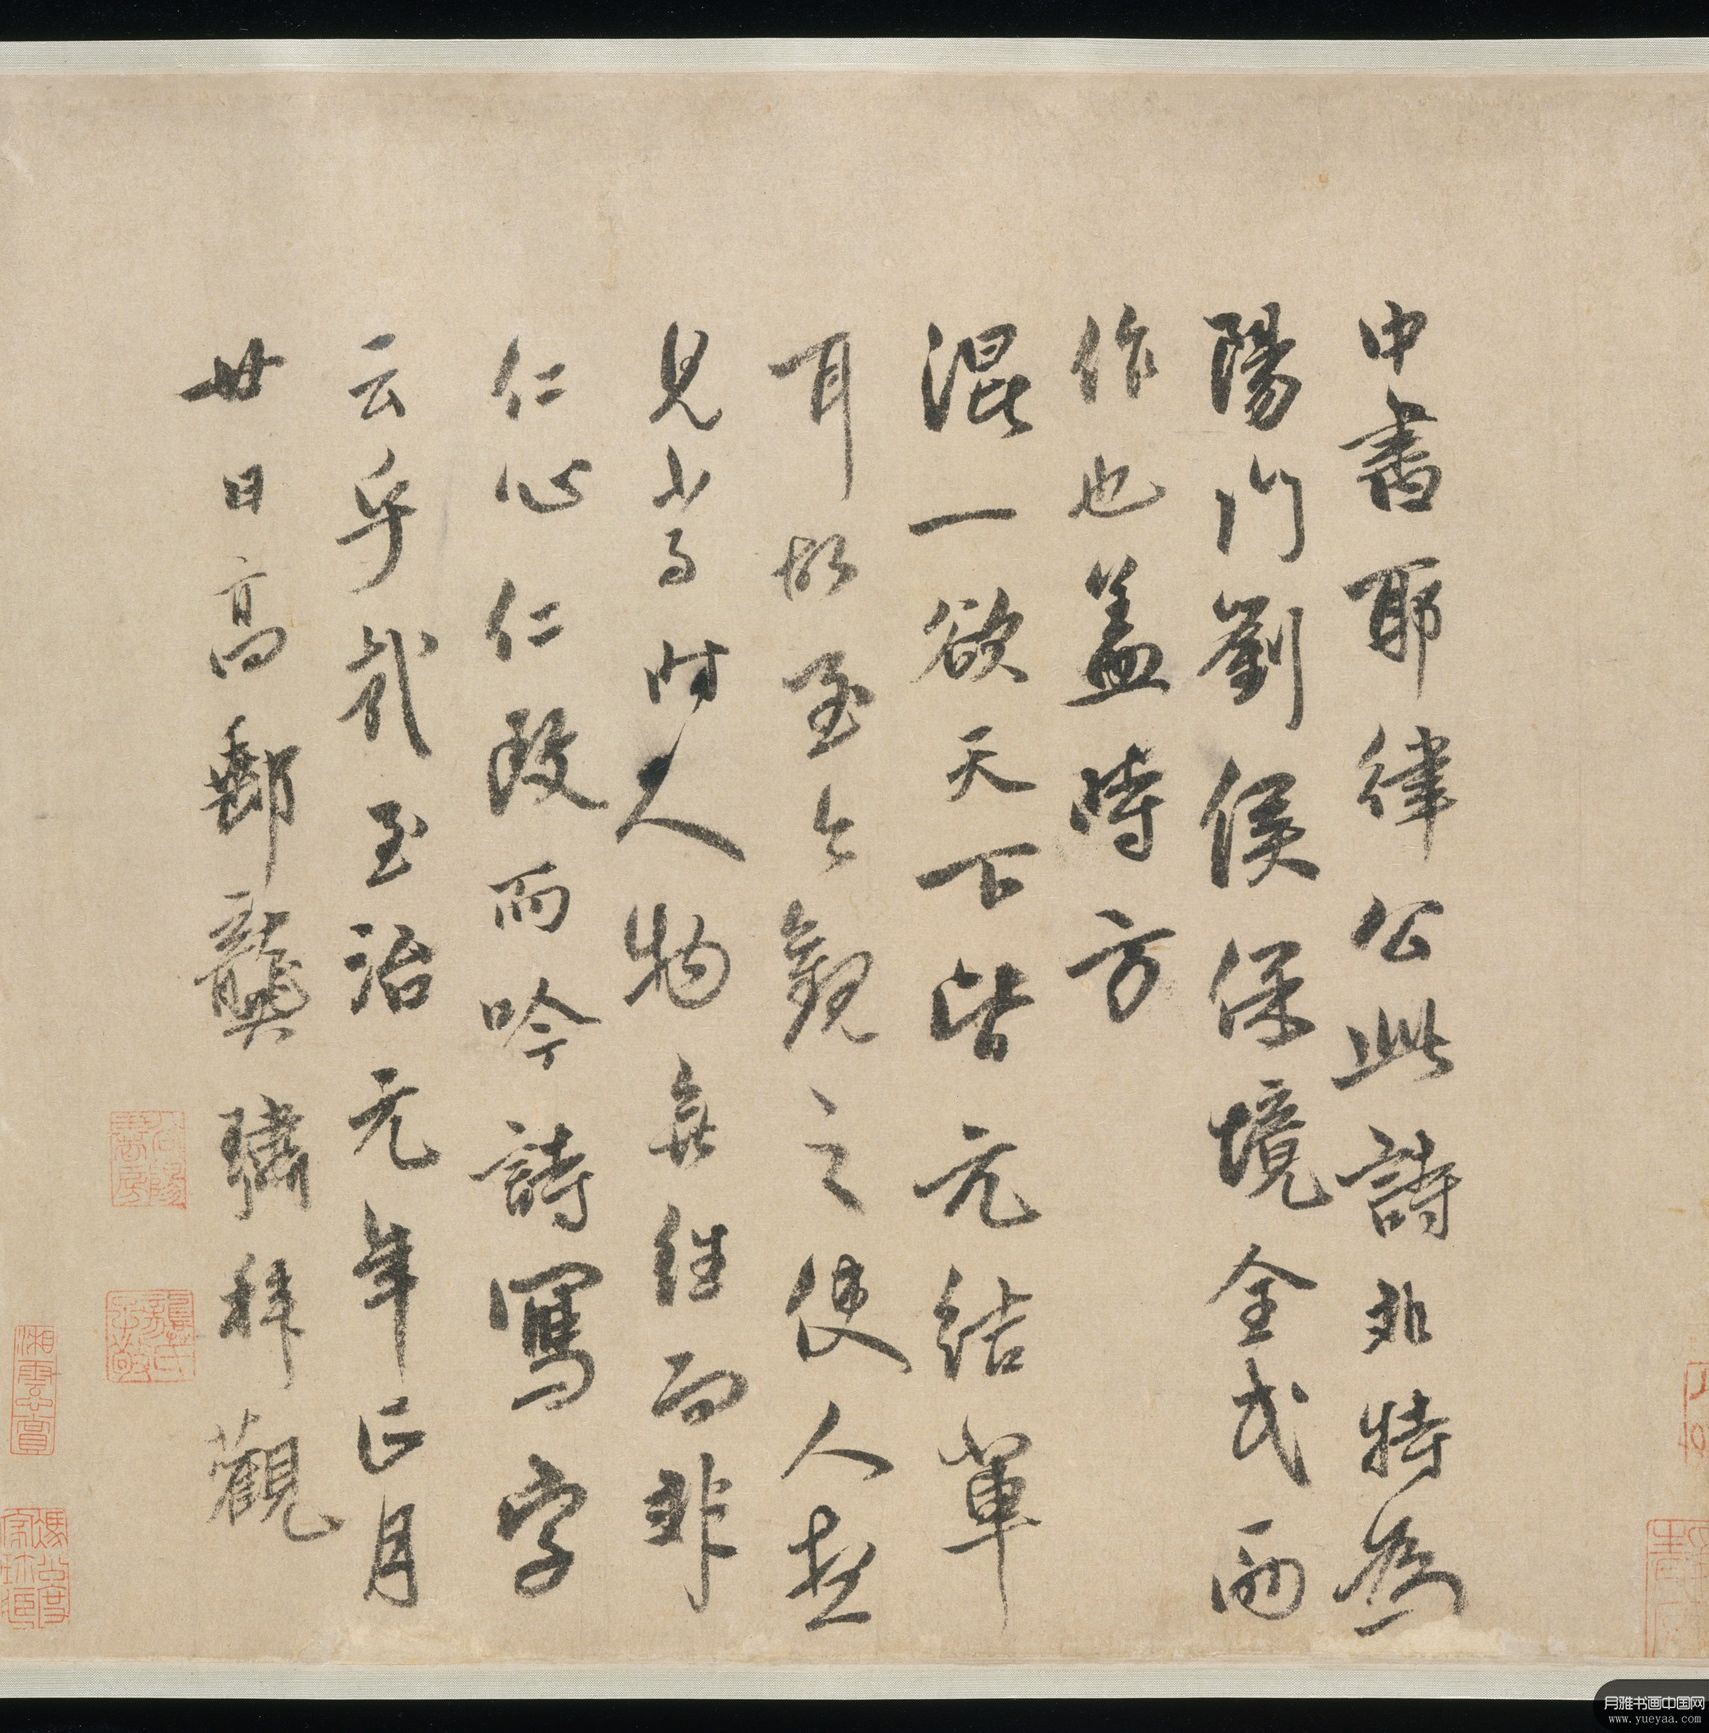 中書耶律公此詩非特為
陽門劉侯保境全民而
作也蓋時方
混一欲天下皆元結輩
耳故至今觀之使人想
見當時人物無往而非
仁心仁政而吟詩寫字
云乎哉至治元年正月
廿日高郵龔璛拜觀
湘雲心賞
月雅书画中国网
www.yueyaa.com